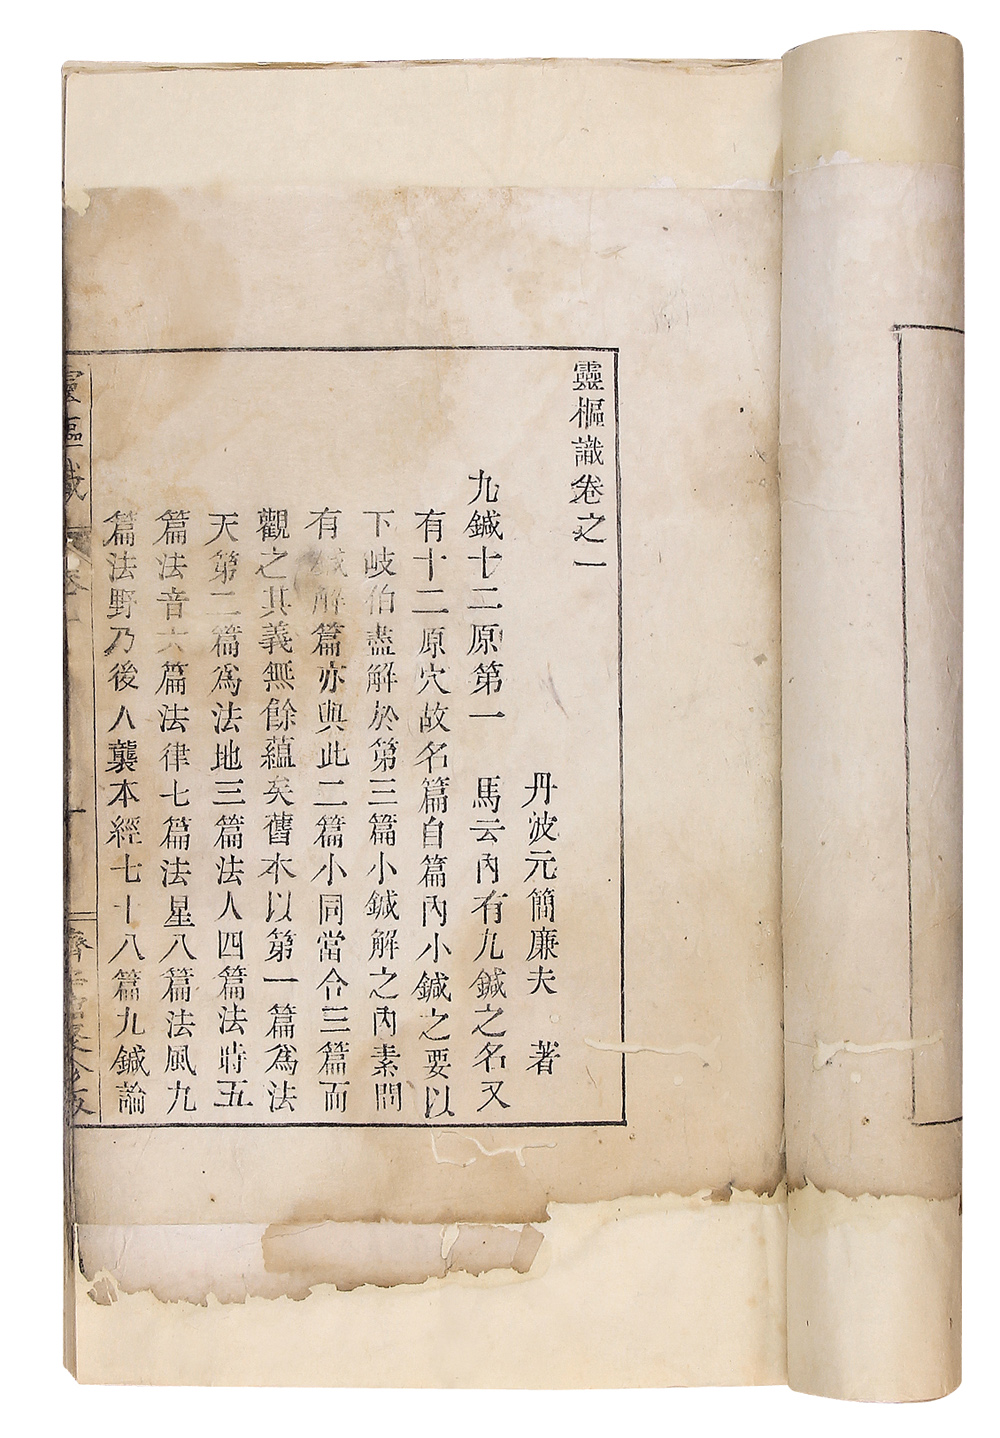 靈樞識卷之一
丹波元簡廉夫 著
九鍼十二原第一 馬云內有九鍼之名又
有十二原穴故名篇自篇內小鍼之要以
下岐伯盡解於第三篇小鍼解之內素問
有鍼解篇亦與此二篇小同當合三篇而
觀之其義無餘蘊矣舊本以第一篇爲法
天第二篇爲法地三篇法人四篇法時五
篇法音六篇法律七篇法星八篇法風九
篇法野乃後人襲本經七十八篇九鍼論
靈樞識 卷一